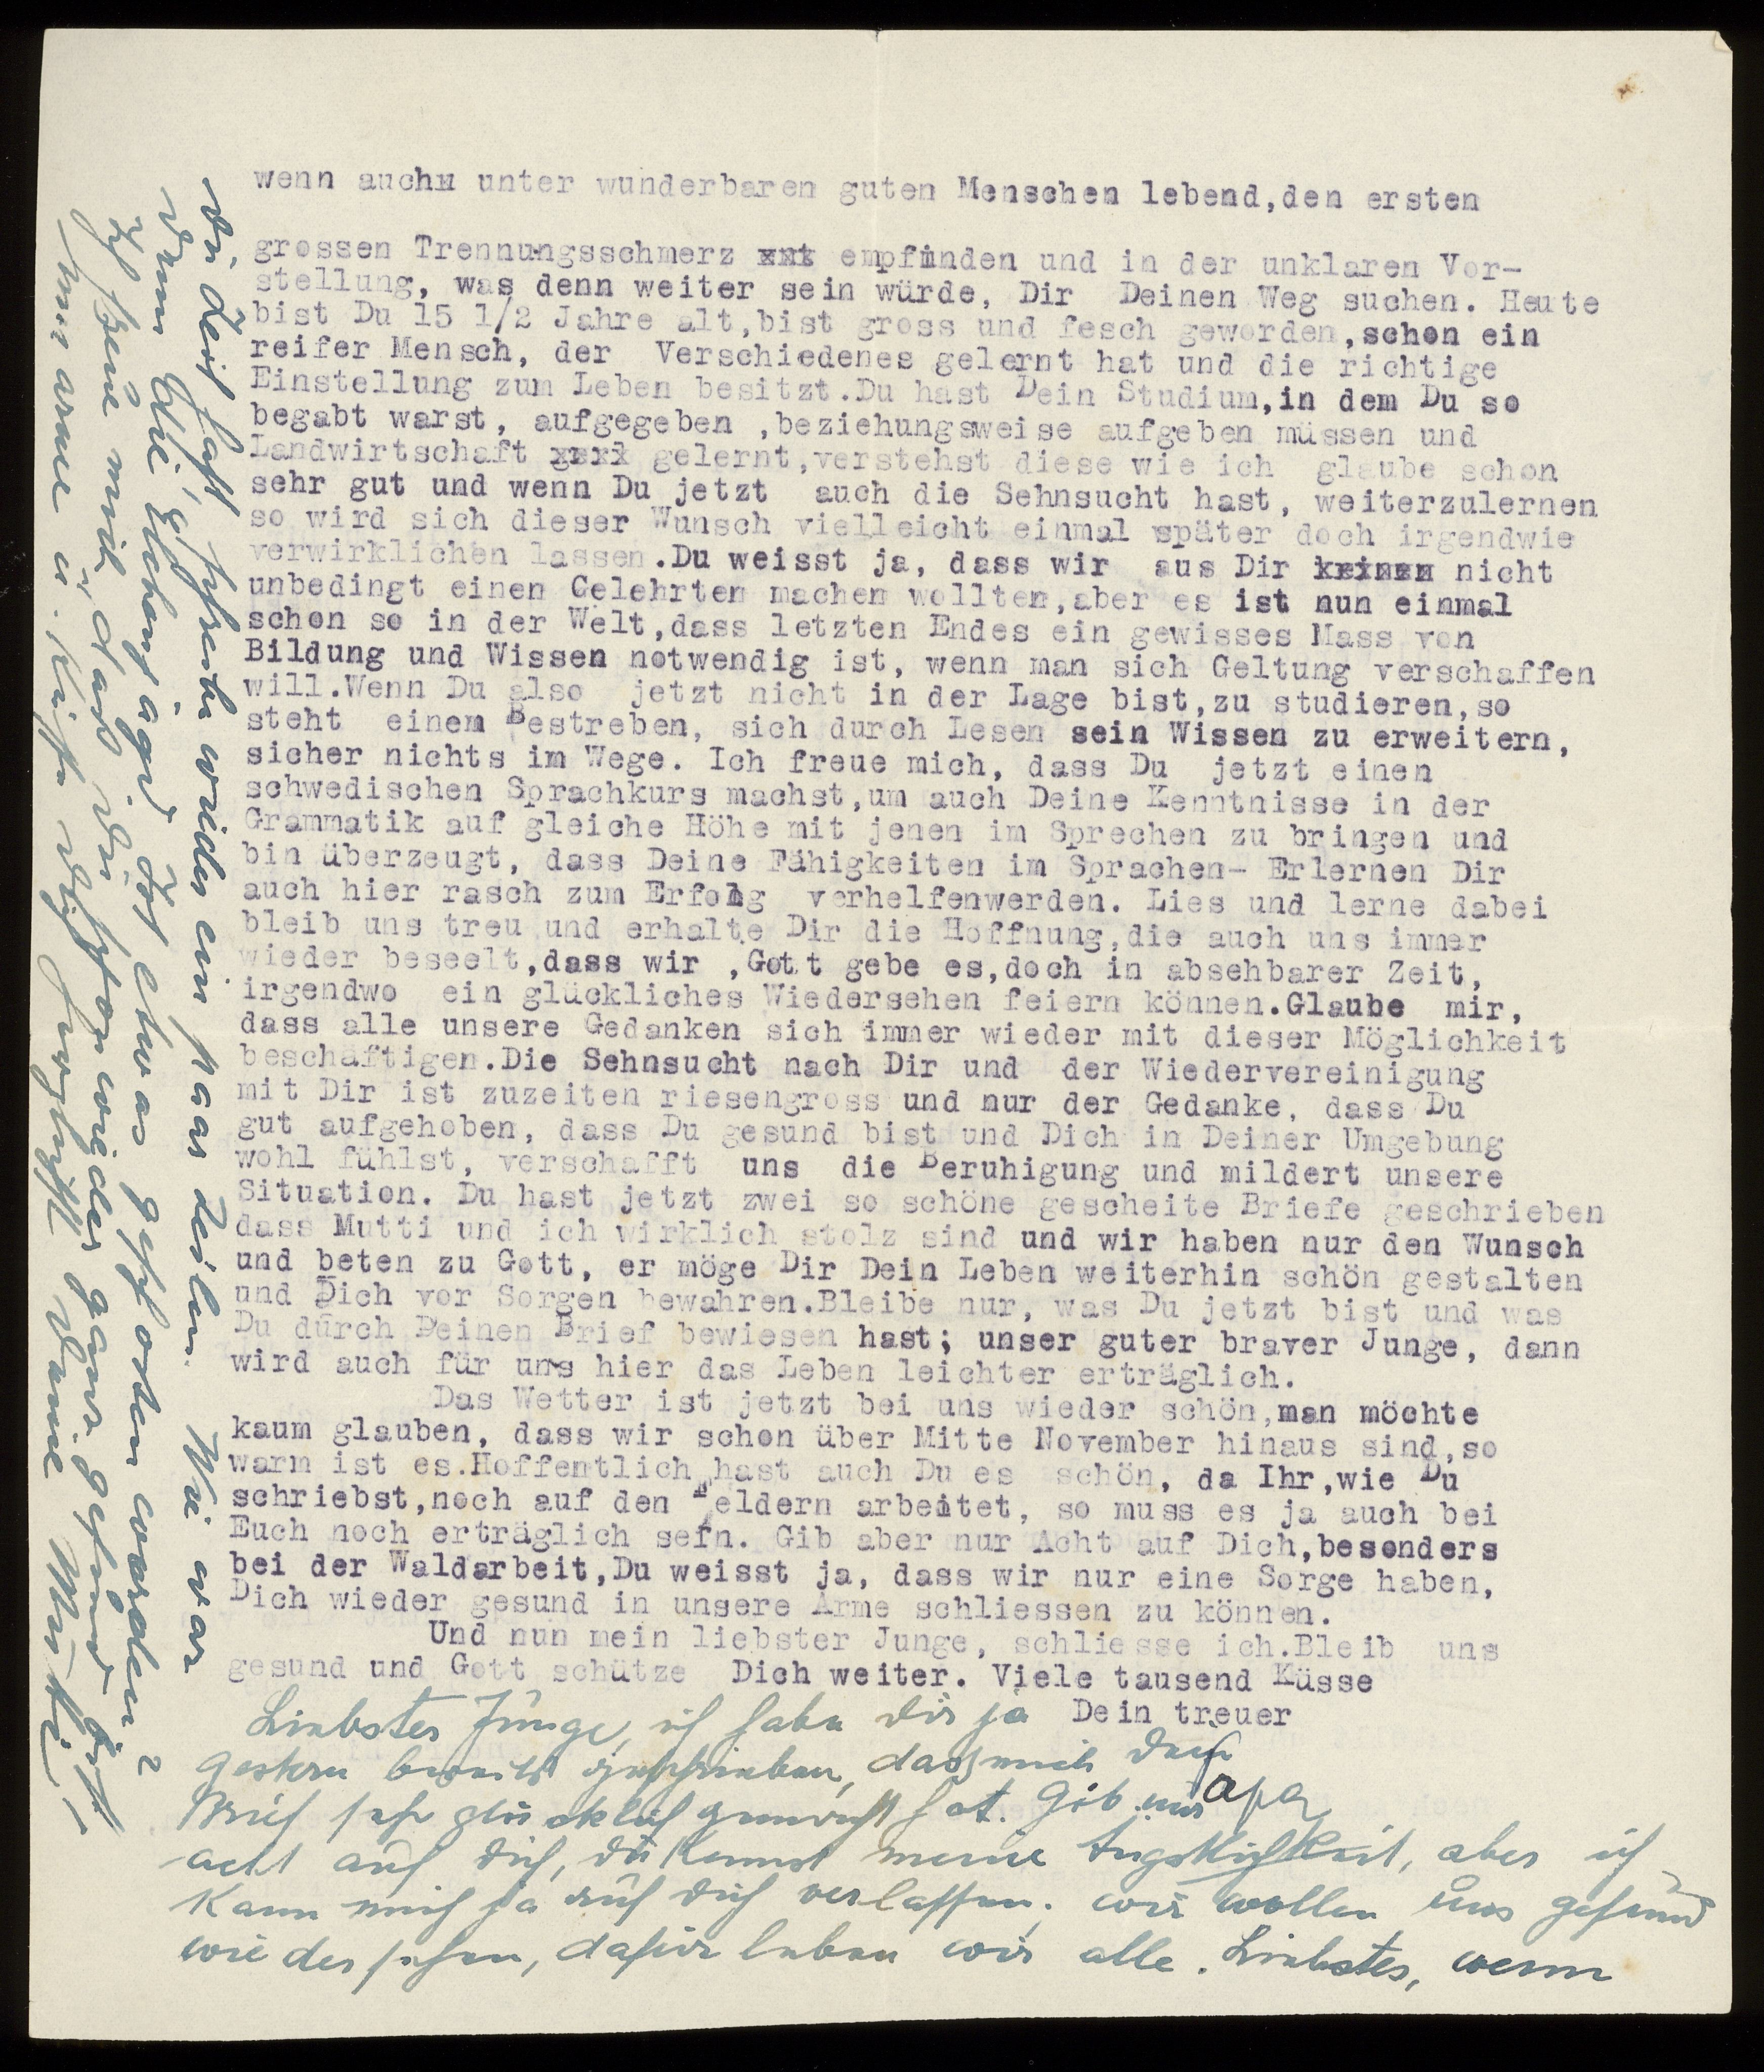 wenn auchn unter wunderbaren guten Menschen lebend,den ersten
grossen Trennungsschmerz xxt empfinden und in der unklaren Vor-
stellung, was denn weiter sein würde, Dir Deinen Weg suchen. Heute
bist Du 15 1/2 Jahre alt,bist gross und fesch geworden,schon ein
reifer Mensch, der Verschiedenes gelernt hat und die richtige
Einstellung zum Leben besitzt.Du hast Dein Studium,in dem Du so
begabt warst, aufgegeben ,beziehungsweise aufgeben müssen und
Landwirtschaft gelernt,verstehst diese wie ich glaube schon
sehr gut und wenn Du jetzt auch die Sehnsucht hast, weiterzulernen
so wird sich dieser Wunsch vielleicht einmal später doch irgendwie
verwirklichen lassen.Du weisst ja, dass wir aus Dir keinen nicht
unbedingt einen Gelehrten machen wollten,aber es ist nun einmal
schon so in der Welt,dass letzten Endes ein gewisses Mass von
Bildung und Wissen notwendig ist, wenn man sich Geltung verschaffen
will.Wenn Du also jetzt nicht in der Lage bist,zu studieren,so
steht einem Bestreben, sich durch Lesen sein Wissen zu erweitern,
sicher nichts im Wege. Ich freue mich, dass Du jetzt einen
schwedischen Sprachkurs machst,um auch Deine Kenntnisse in der
Grammatik auf gleiche Höhe mit jenen im Sprechen zu bringen und
bin überzeugt, dass Deine Fähigkeiten im Sprachen- Erlernen Dir
auch hier rasch zum Erfolg verhelfenwerden. Lies und lerne dabei
bleib uns treu und erhalte Dir die Hoffnung,die auch uns immer
wieder beseelt,dass wir ,Gott gebe es,doch in absehbarer Zeit,
irgendwo ein glückliches Wiedersehen feiern können.Glaube mir,
dass alle unsere Gedanken sich immer wieder mit dieser Möglichkeit
beschäftigen.Die Sehnsucht nach Dir und der Wiedervereinigung
mit Dir ist zuzeiten riesengross und nur der Gedanke, dass Du
gut aufgehoben, dass Du gesund bist und Dich in Deiner Umgebung
wohl fühlst, verschafft uns die Beruhigung und mildert unsere
Situation. Du hast jetzt zwei so schöne gescheite Briefe geschrieben
dass Mutti und ich wirklich stolz sind und wir haben nur den Wunsch
und beten zu Gott, er möge Dir Dein Leben weiterhin schön gestalten
und Dich vor Sorgen bewahren.Bleibe nur, was Du jetzt bist und was
Du durch Deinen Brief bewiesen hast; unser guter braver Junge, dann
wird auch für uns hier das Leben leichter erträglich.
Das Wetter ist jetzt bei uns wieder schön,man möchte
kaum glauben, dass wir schon über Mitte November hinaus sind,so
warm ist es.Hoffentlich hast auch Du es schön, da Ihr,wie Du
schriebst,noch auf den Feldern arbeitet, so muss es ja auch bei
Euch noch erträglich sein. Gib aber nur Acht auf Dich,besonders
bei der Waldarbeit,Du weisst ja, dass wir nur eine Sorge haben,
Dich wieder gesund in unsere Arme schliessen zu können.
Und nun mein liebster Junge, schliesse ich.Bleib uns
gesund und Gott schütze Dich weiter. Viele tausend Küsse
Dein treuer
Papa
Liebster Junge, ich habe Dir ja
gestern bereits geschrieben, dass mich Dein
Brief sehr glücklich gemacht hat. Gib nur
acht auf Dich, Du kennst meine Ängstlichkeit, aber ich
kann mich ja auf Dich verlassen; wir wollen uns gesund
wiedersehen, dafür leben wir alle. Liebster, wenn
Du Zeit hast, schreibe wieder ein paar Zeilen. Wie war
denn die Elchenjagd? Ist etwas geschossen worden?
Ich freue mich, dass Du wieder ganz gesund bist
umarme u. küsse Dich Deine Mutti